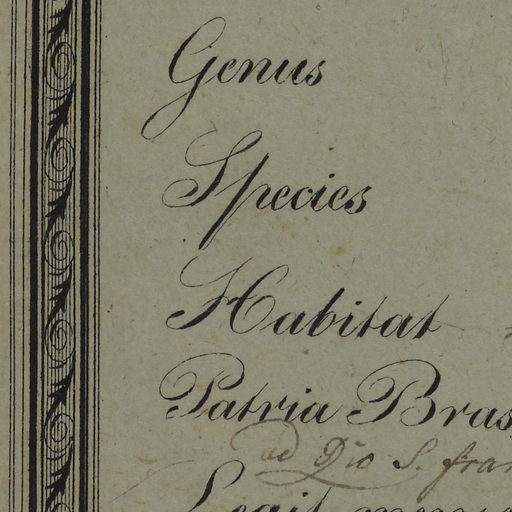 Genus
Species
Habitat
Patria Bras
ad Rio S. fran
Legit